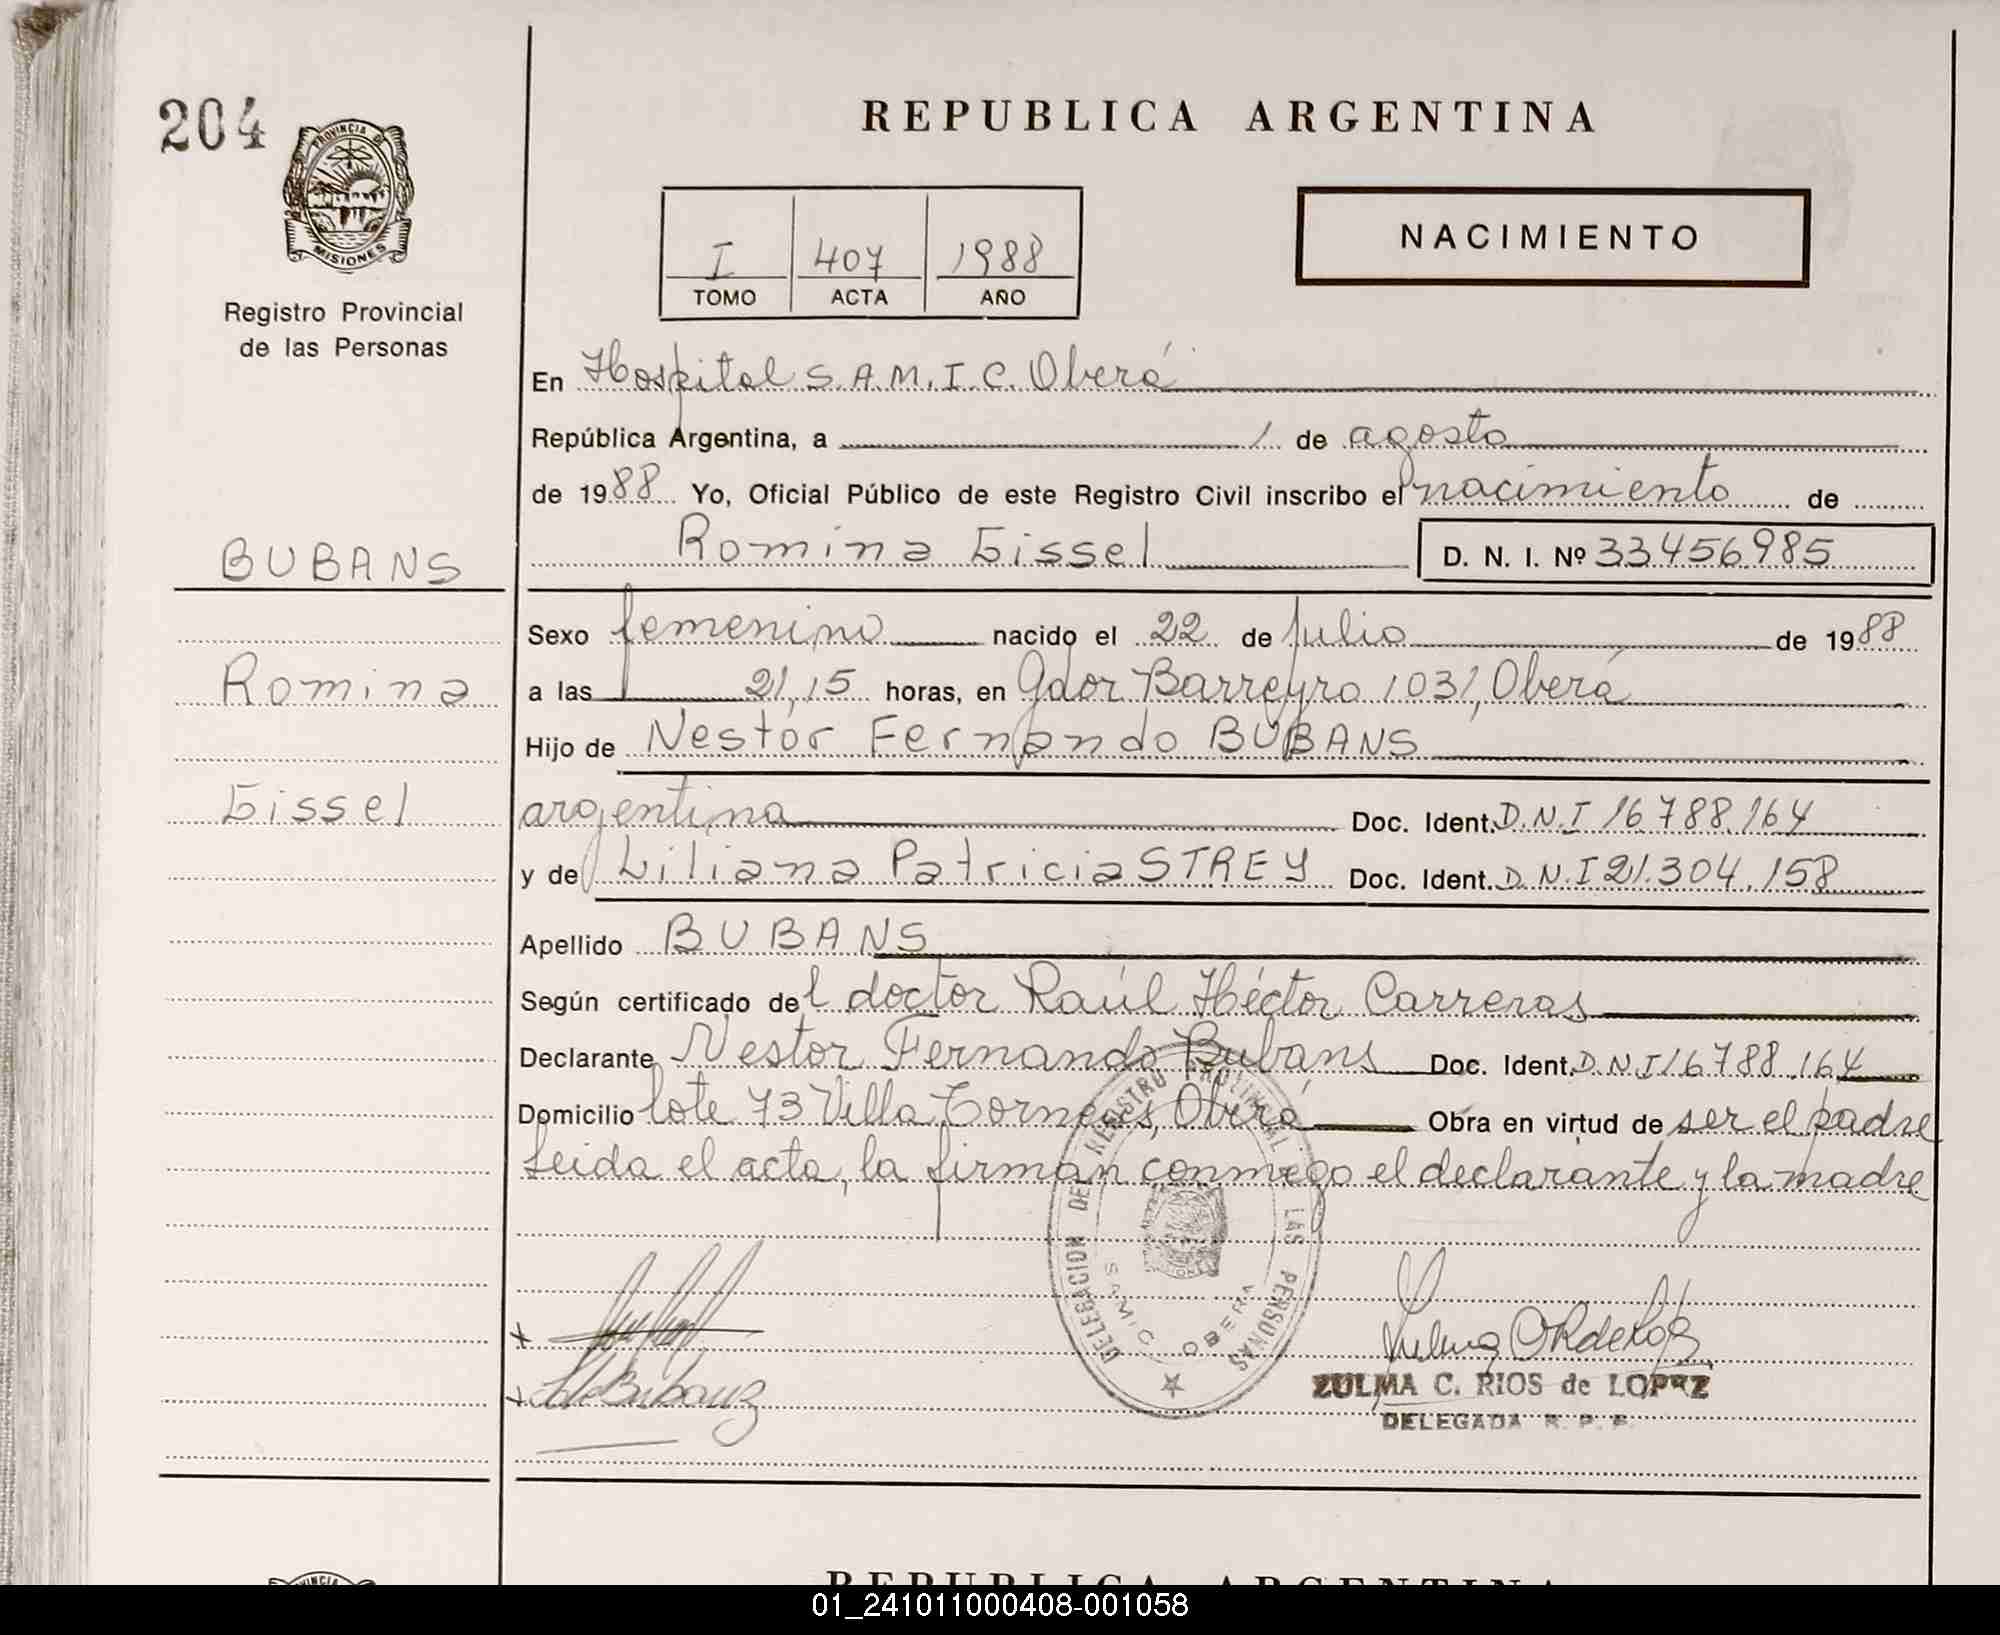 204
PROVINCIA DE
MISIONES
Registro Provincial
de las Personas
REPUBLICA ARGENTINA
I 407 1988
TOMO ACTA AÑO
NACIMIENTO
En Hospital S.A.M.I.C. Oberá
República Argentina, a 1 de agosto
de 1988 Yo, Oficial Público de este Registro Civil inscribo el nacimiento de
Romina Gissel D. N. I. Nº 33456985
BUBANS
Romina
Gissel
Sexo femenino nacido el 22 de julio de 1988
a las 21,15 horas, en Gdor Barreyro 1031, Oberá
Hijo de Nestor Fernando BUBANS
argentina Doc. Ident. D.N.I 16.788.164
y de Liliana Patricia STREY Doc. Ident. D.N.I 21.304.158
Apellido BUBANS
Según certificado del doctor Raúl Héctor Carreras
Declarante Nestor Fernando Bubans Doc. Ident. D.N.I 16788.164
Domicilio lote 73 Villa Torneus, Oberá Obra en virtud de ser el padre
Leida el acta, la firman conmego el declarante y la madre
DELEGACION DEL REGISTRO PROVINCIAL DE LAS PERSONAS
SAMIC OBERA
ZULMA C. RIOS de LOPEZ
DELEGADA R. P. P.
REPUBLICA ARGENTINA
01_241011000408-001058